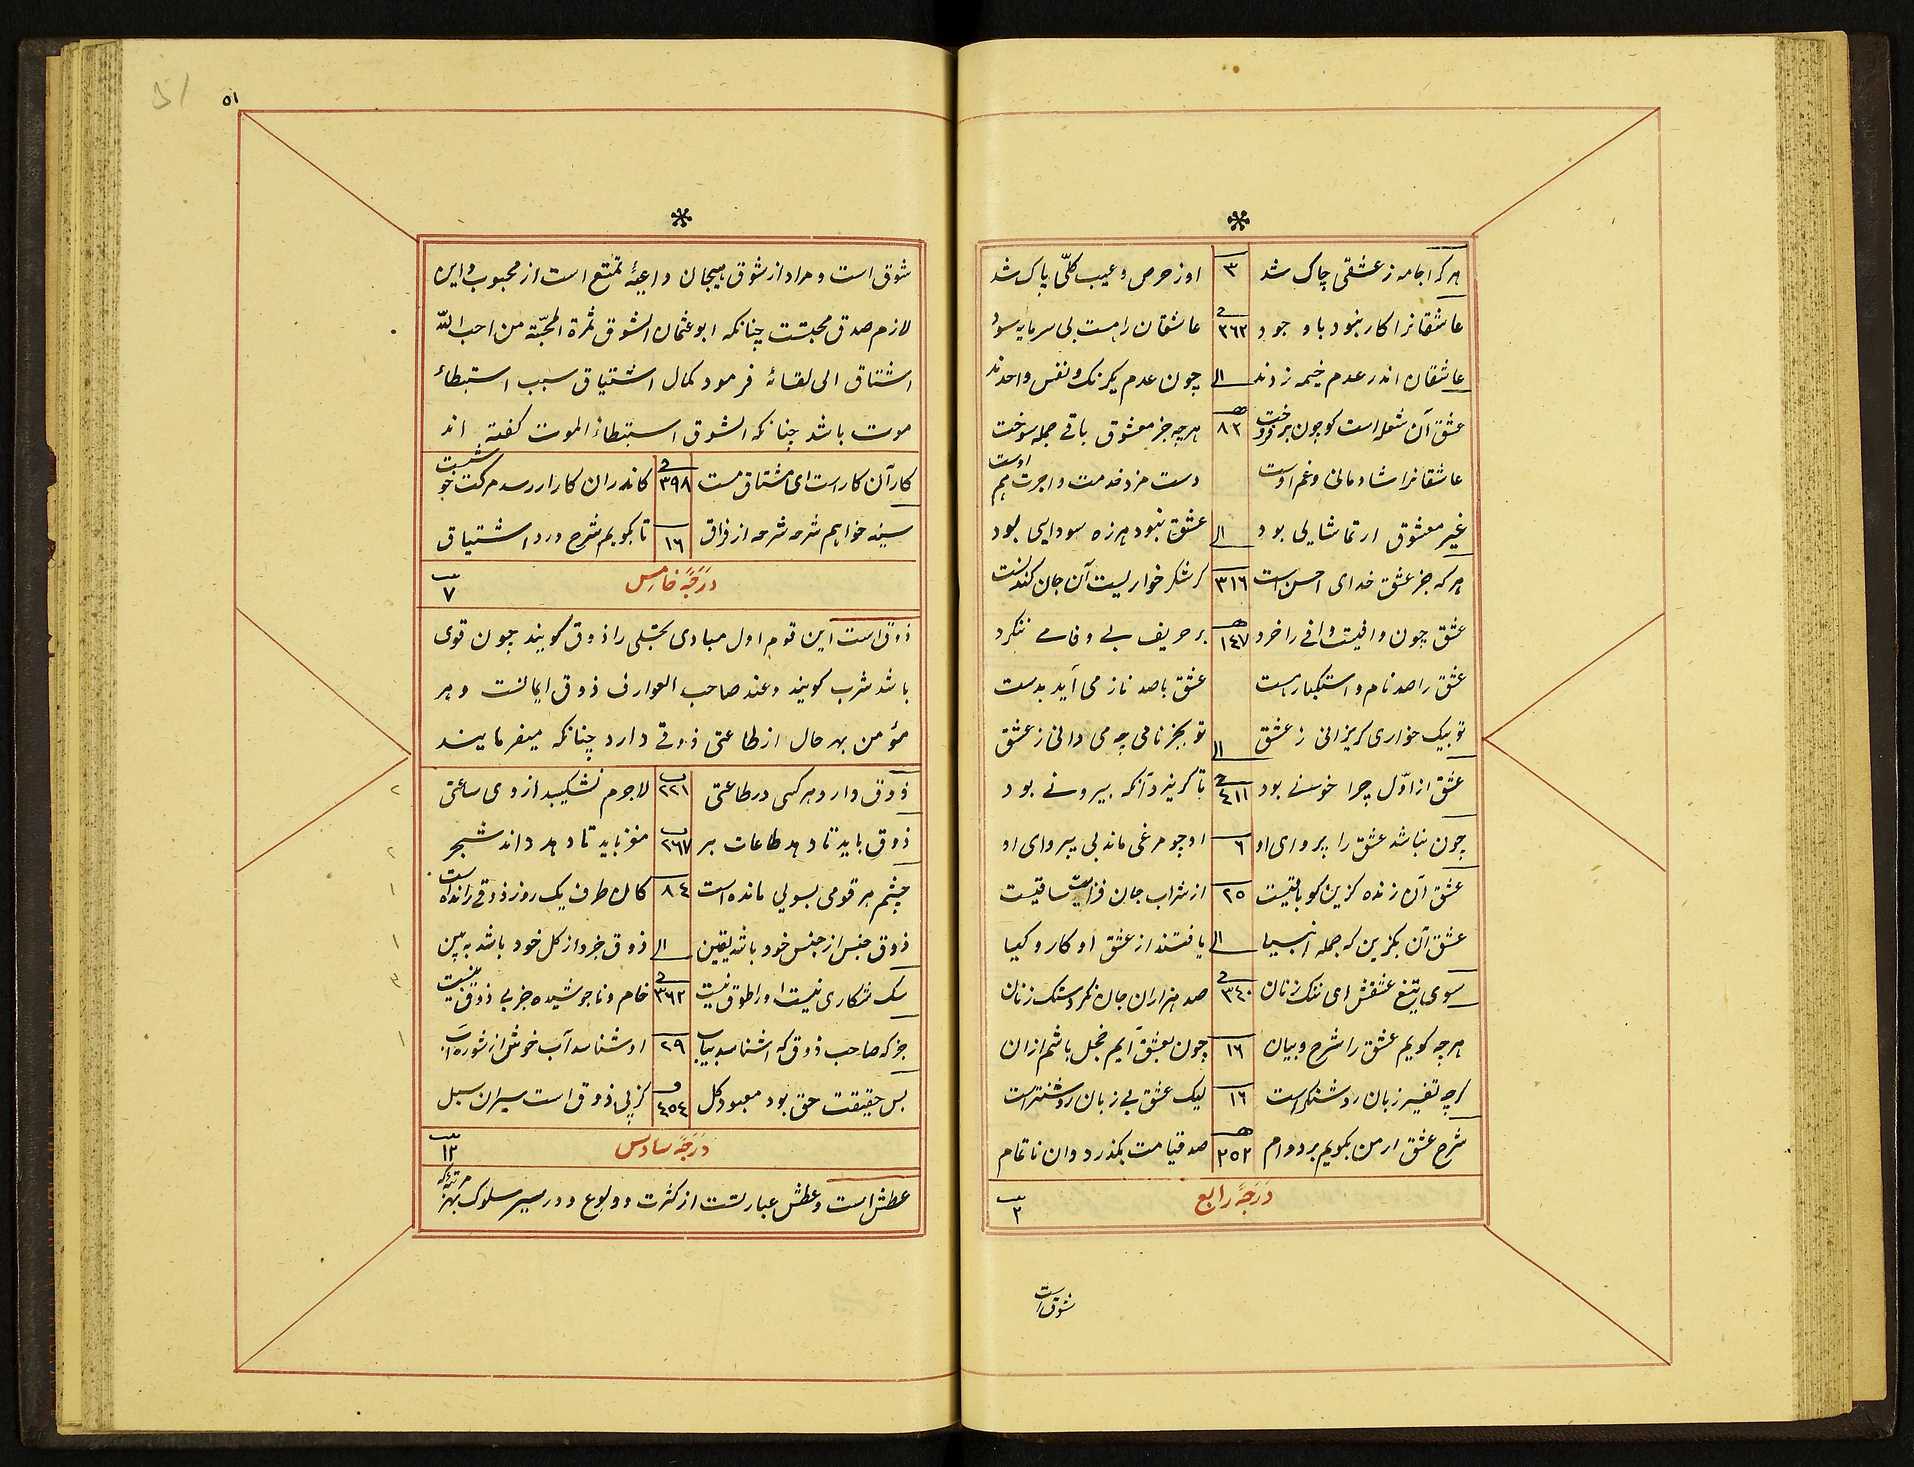 هر کرا جامه ز عشقی چاک شد ٣ او ز حرص و عیب کلّی پاک شد
عاشقانرا کار نبود با وجود ٣٦٢ عاشقان را هست بی سرمایه سود
عاشقان اندر عدم خیمه زدند الی چون عدم یکرنک و نفس واحدند
عشق آن شعله است کو چون برفروخت ٨٢ هر چه جز معشوق باقی جمله سوخت
عاشقانرا شادمانی و غم اوست دست مزد خدمت و اجرت هم اوست
غیر معشوق ار تماشایی بود الی عشق نبود هرزه سودایی بود
هر که جز عشق خدای احسن است ٣١٦ کر شکر خواریست آن جان کندنست
عشق چون وافیست وافی را خرد ١٤٧ بر حریف بی وفا می ننکرد
عشق را صد نام و استکبار هست عشق با صد ناز می آید بدست
تو بیک خواری کریزانی ز عشق الی تو بجز نامی چه می دانی ز عشق
عشق از اوّل چرا خونی بود ٤١١ تا کریزد آنکه بیرونی بود
چون نباشد عشق را پروای او ٦ او چو مرغی ماند بی پروای او
عشق آن زنده کزین کو باقیست ٢٥ از شراب جان فزایت ساقیست
عشق آن بکزین که جمله انبیا الی یافتند از عشق او کار و کیا
سوی تیغ عشقش ای ننک زنان ٣٤٠ صد هزاران جان نکر دستک زنان
هر چه کویم عشق را شرح و بیان ١٦ چون بعشق آیم خجل باشم از ان
کرچه تفسیر زبان روشنکر است ١٦ لیک عشق بی زبان روشنتر است
شرح عشق ار من بکویم بر دوام ٢٥٢ صد قیامت بکذرد وان ناتمام
دَرَجَهٔ رابع ٢
شوق است
٥١
شوق است و مراد از شوق هیجان داعیهٔ تمتع است از محبوب و این
لازم صدق محبتست چنانکه ابو عثمان الشوق ثمرة المحبّة من احب الله
اشتاق الی لقائه فرمود کمال اشتیاق سبب استبطاء
موت باشد چنانکه الشوق استبطاء الموت کفته اند
کار آن کار است ای مشتاق مست ٣٩٨ کاندران کار ار رسد مرکت خوشست
سینه خواهم شرحه شرحه از فراق ١٦ تا بکویم شرح درد اشتیاق
دَرَجَهٔ خامس ٧
ذوق است این قوم اول مبادی تجلی را ذوق کویند چون قوی
باشد شرب کویند و عند صاحب العوارف ذوق ایمانست و هر
مؤمن بهر حال از طاعتی ذوقی دارد چنانکه میفرمایند
ذوق دارد هر کسی در طاعتی ٢٢١ لاجرم نشکیبد از وی ساعتی
ذوق باید تا دهد طاعات بر ٢٦٧ مغز باید تا دهد دانه شجر
چشم هر قومی بسویی مانده است ٨٤ کان طرف یک روز ذوقی رانده است
ذوق جنس از جنس خود باشد یقین الی ذوق جزو از کل خود باشد ببین
سک شکاری نیست او را طوق نیست ٣٦٢ خام و ناجوشیده جز بی ذوق نیست
جز که صاحب ذوق که اشناسد بیاب ٢٩ او شناسد آب خوش از شوره آب
بس حقیقت حق بود معبود کل ٤٥٤ کز پی ذوق است سیران سبل
دَرَجَهٔ سادس ١٢
عطش است و عطش عبارتست از کثرت و ولوع و در سیر سلوک بهر مرتبه که